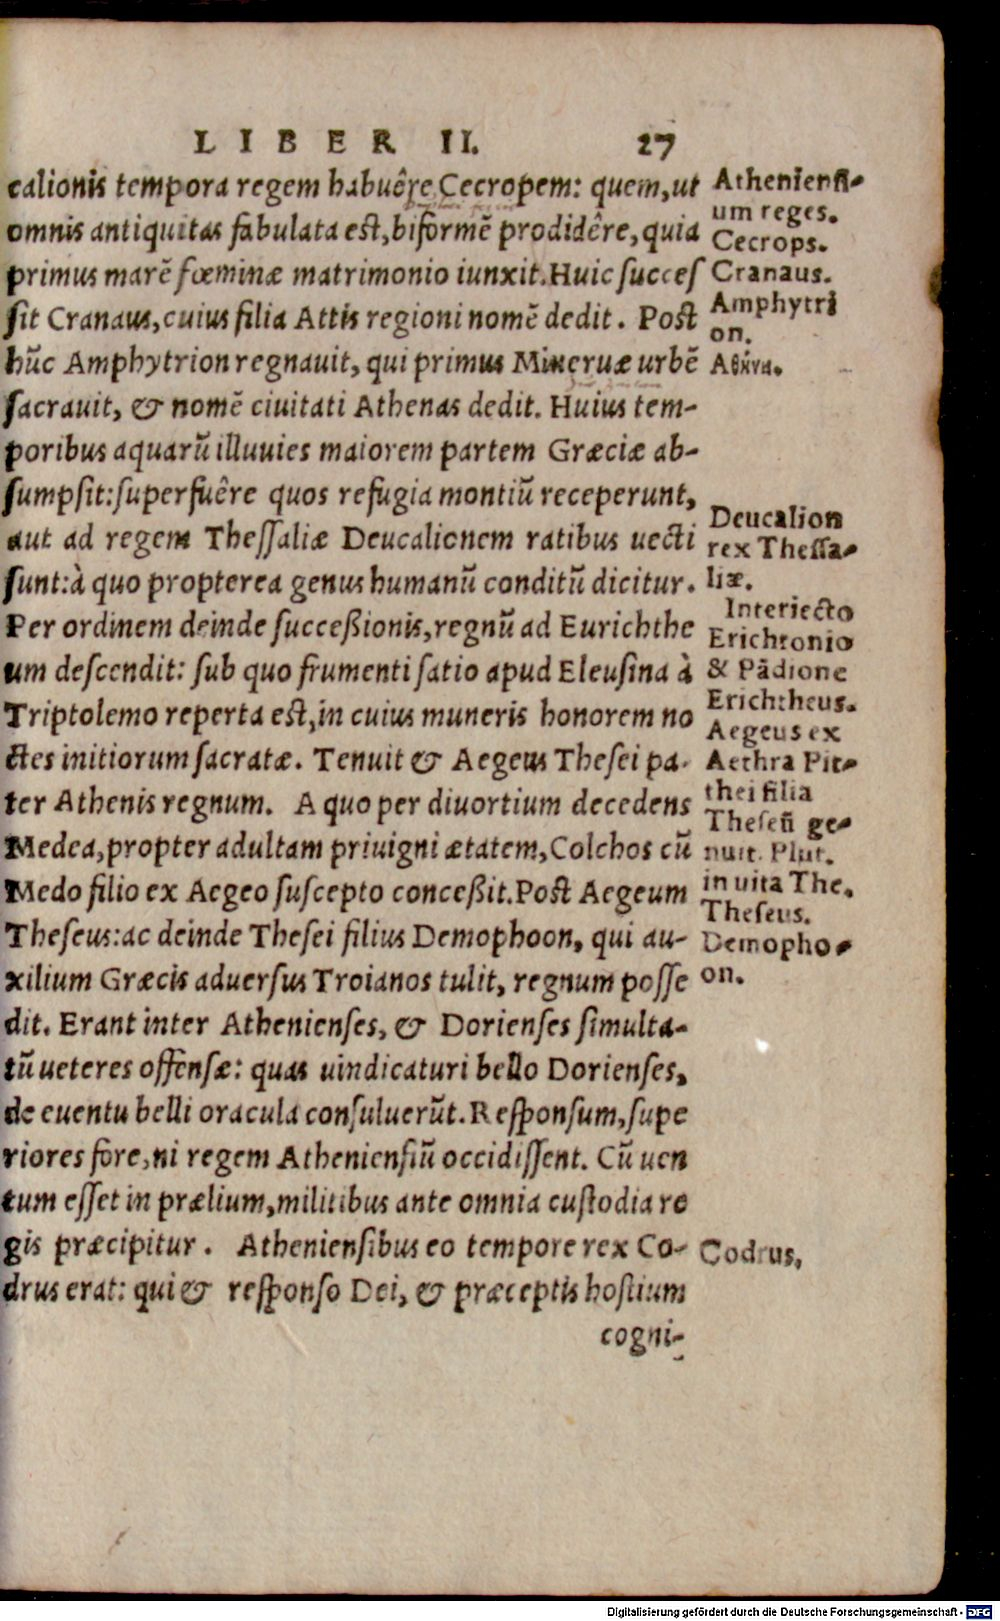 LIBER II. 27
calionis tempora regem habuêre Cecropem: quem, ut
omnis antiquitas fabulata est, biformē prodidêre, quia
primus marē fœminæ matrimonio iunxit. Huic succes
sit Cranaus, cuius filia Attis regioni nomē dedit. Post
hūc Amphytrion regnauit, qui primus Mineruæ urbē
sacrauit, & nomē ciuitati Athenas dedit. Huius tem-
poribus aquarū illuuies maiorem partem Græciæ ab-
sumpsit: superfuêre quos refugia montiū receperunt,
aut ad regem Thessaliæ Deucalionem ratibus uecti
sunt: à quo propterea genus humanū conditū dicitur.
Per ordinem deinde successionis, regnū ad Eurichthe
um descendit: sub quo frumenti satio apud Eleusina à
Triptolemo reperta est, in cuius muneris honorem no
ctes initiorum sacratæ. Tenuit & Aegeus Thesei pa-
ter Athenis regnum. A quo per diuortium decedens
Medea, propter adultam priuigni ætatem, Colchos cū
Medo filio ex Aegeo suscepto concessit. Post Aegeum
Theseus: ac deinde Thesei filius Demophoon, qui au-
xilium Græcis aduersus Troianos tulit, regnum posse
dit. Erant inter Athenienses, & Dorienses simulta-
tū ueteres offensæ: quas uindicaturi bello Dorienses,
de euentu belli oracula consuluerūt. Responsum, supe
riores fore, ni regem Atheniensiū occidissent. Cū uen
tum esset in prælium, militibus ante omnia custodia re
gis præcipitur. Atheniensibus eo tempore rex Co-
drus erat: qui & responso Dei, & præceptis hostium
cogni-
Atheniensi-
um reges.
Cecrops.
Cranaus.
Amphytri
on.
Αθήνα.
Deucalion
rex Thessa-
liæ.
Interiecto
Erichtonio
& Pādione
Erichtheus.
Aegeus ex
Aethra Pit-
thei filia
Theseū ge-
nuit. Plut.
in uita The.
Theseus.
Demopho-
on.
Codrus,
Digitalisierung gefördert durch die Deutsche Forschungsgemeinschaft - DFG